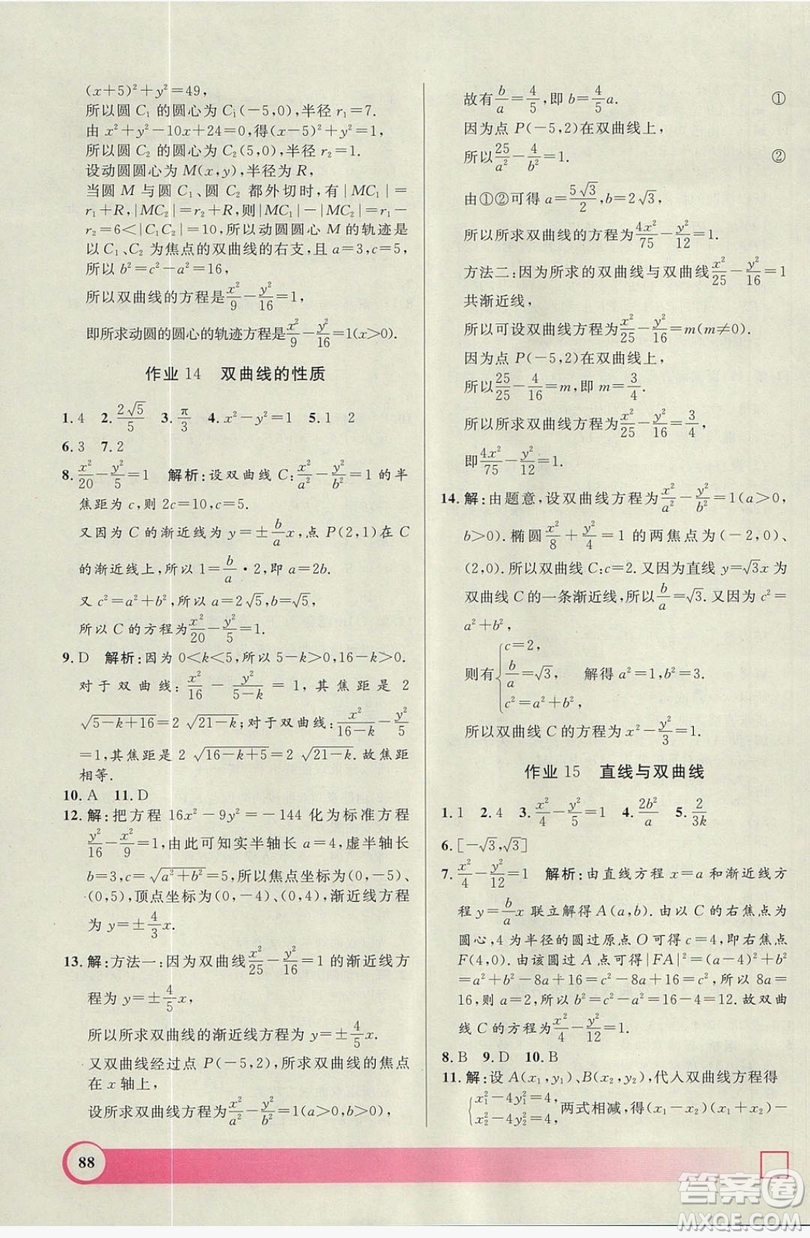 (x+5)²+y²=49,
所以圆 C₁ 的圆心为 C₁(-5,0),半径 r₁=7.
由 x²+y²-10x+24=0,得(x-5)²+y²=1,
所以圆 C₂ 的圆心为 C₂(5,0),半径 r₂=1.
设动圆圆心为 M(x,y),半径为 R,
当圆 M 与圆 C₁、圆 C₂ 都外切时,有|MC₁|=
r₁+R,|MC₂|=r₂+R,则|MC₁|-|MC₂|=
r₁-r₂=6<|C₁C₂|=10,所以动圆圆心 M 的轨迹是
以 C₁、C₂ 为焦点的双曲线的右支,且 a=3,c=5,
所以 b²=c²-a²=16,
所以双曲线的方程是x²/9-y²/16=1,
即所求动圆的圆心的轨迹方程是x²/9-y²/16=1(x>0).
作业 14 双曲线的性质
1.4 2.2√5/5 3.π/3 4.x²-y²=1 5.1 2
6.3 7.2
8.x²/20-y²/5=1 解析:设双曲线 C:x²/a²-y²/b²=1 的半
焦距为 c,则 2c=10,c=5.
又因为 C 的渐近线为 y=±b/a x,点 P(2,1)在 C
的渐近线上,所以 1=b/a·2,即 a=2b.
又 c²=a²+b²,所以 a=2√5,b=√5,
所以 C 的方程为x²/20-y²/5=1.
9.D 解析:因为 0<k<5,所以 5-k>0,16-k>0.
对于双曲线:x²/16-y²/(5-k)=1,其焦距是 2
√(5-k+16)=2 √(21-k);对于双曲线:x²/(16-k)-y²/5
=1,其焦距是 2 √(16-k+5)=2 √(21-k).故焦距
相等.
10.A 11.D
12.解:把方程 16x²-9y²=-144 化为标准方程
y²/16-x²/9=1,由此可知实半轴长 a=4,虚半轴长
b=3,c=√(a²+b²)=5,所以焦点坐标为(0,5),(0,
-5),顶点坐标为(0,-4),(0,4),渐近线方程
为 y=±4/3 x.
13.解:方法一:因为双曲线x²/25-y²/16=1 的渐近线方
程为 y=±4/5 x,
所以所求双曲线的渐近线方程为 y=±4/5 x.
又双曲线经过点 P(-5,2),所以所求双曲线的焦点
在 x 轴上,
设所求双曲线方程为x²/a²-y²/b²=1(a>0,b>0),
88
故有b/a=4/5,即 b=4/5 a. ①
因为点 P(-5,2)在双曲线上,
所以25/a²-4/b²=1. ②
由①②可得 a=5√3/2,b=2√3,
所以所求双曲线的方程为4x²/75-y²/12=1.
方法二:因为所求的双曲线与双曲线x²/25-y²/16=1
共渐近线,
所以可设双曲线方程为x²/25-y²/16=m(m≠0).
因为点 P(-5,2)在双曲线上,
所以25/25-4/16=m,即 m=3/4.
所以所求双曲线的方程为x²/25-y²/16=3/4,
即4x²/75-y²/12=1.
14.解:由题意,设双曲线方程为x²/a²-y²/b²=1(a>0,
b>0).椭圆x²/8+y²/4=1 的两焦点为(-2,0)、
(2,0).所以双曲线 C:c=2.又因为直线 y=√3x 为
双曲线 C 的一条渐近线,所以b/a=√3.又因为 c²=
a²+b²,
则有{c=2, b/a=√3, c²=a²+b², 解得 a²=1,b²=3,
所以双曲线 C 的方程为 x²-y²/3=1.
作业 15 直线与双曲线
1.1 2.4 3.x²/4-y²/5=1 4.2b²/a 5.2/3k
6.[-√3,√3]
7.x²/4-y²/12=1 解析:由直线方程 x=a 和渐近线方
程 y=b/a x 联立解得 A(a,b).由以 C 的右焦点为
圆心,4 为半径的圆过原点 O 可得 c=4,即右焦点
F(4,0).由该圆过点 A 可得|FA|²=(a-4)²+
b²=a²+b²-8a+16=c²-8a+16=c²,所以 8a=
16,则 a=2,所以 b²=c²-a²=16-4=12.故双曲
线 C 的方程为x²/4-y²/12=1.
8.B 9.D 10.B
11.解:设 A(x₁,y₁)、B(x₂,y₂),代入双曲线方程得
{x₁²-4y₁²=4, x₂²-4y₂²=4, 两式相减,得(x₁-x₂)(x₁+x₂)-
答案圈
MXQE.COM